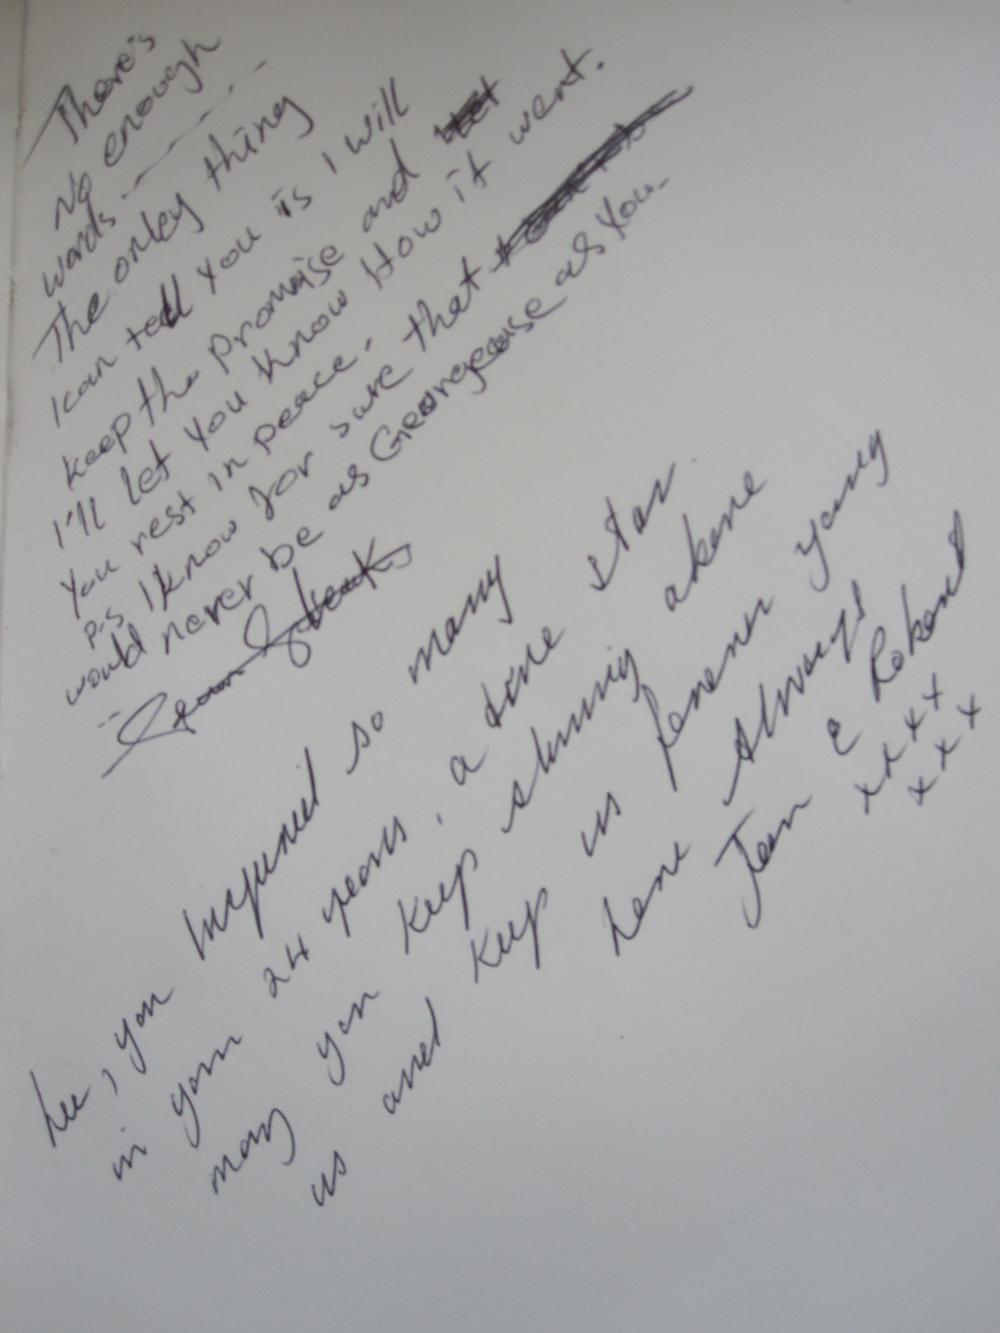 There's
No enough
words.
The onley thing
I can tell You is I will
keep the Promaise and
I'll let You know How it went.
You rest in peace.
P.S I know for sure that
would never be as Georgeouse as You.
Lee, you inspired so many
in your 24 years, a true star
may you keep shining above
us and keep us forever young
Love Always
Jean & Roland
xxxx
xxx